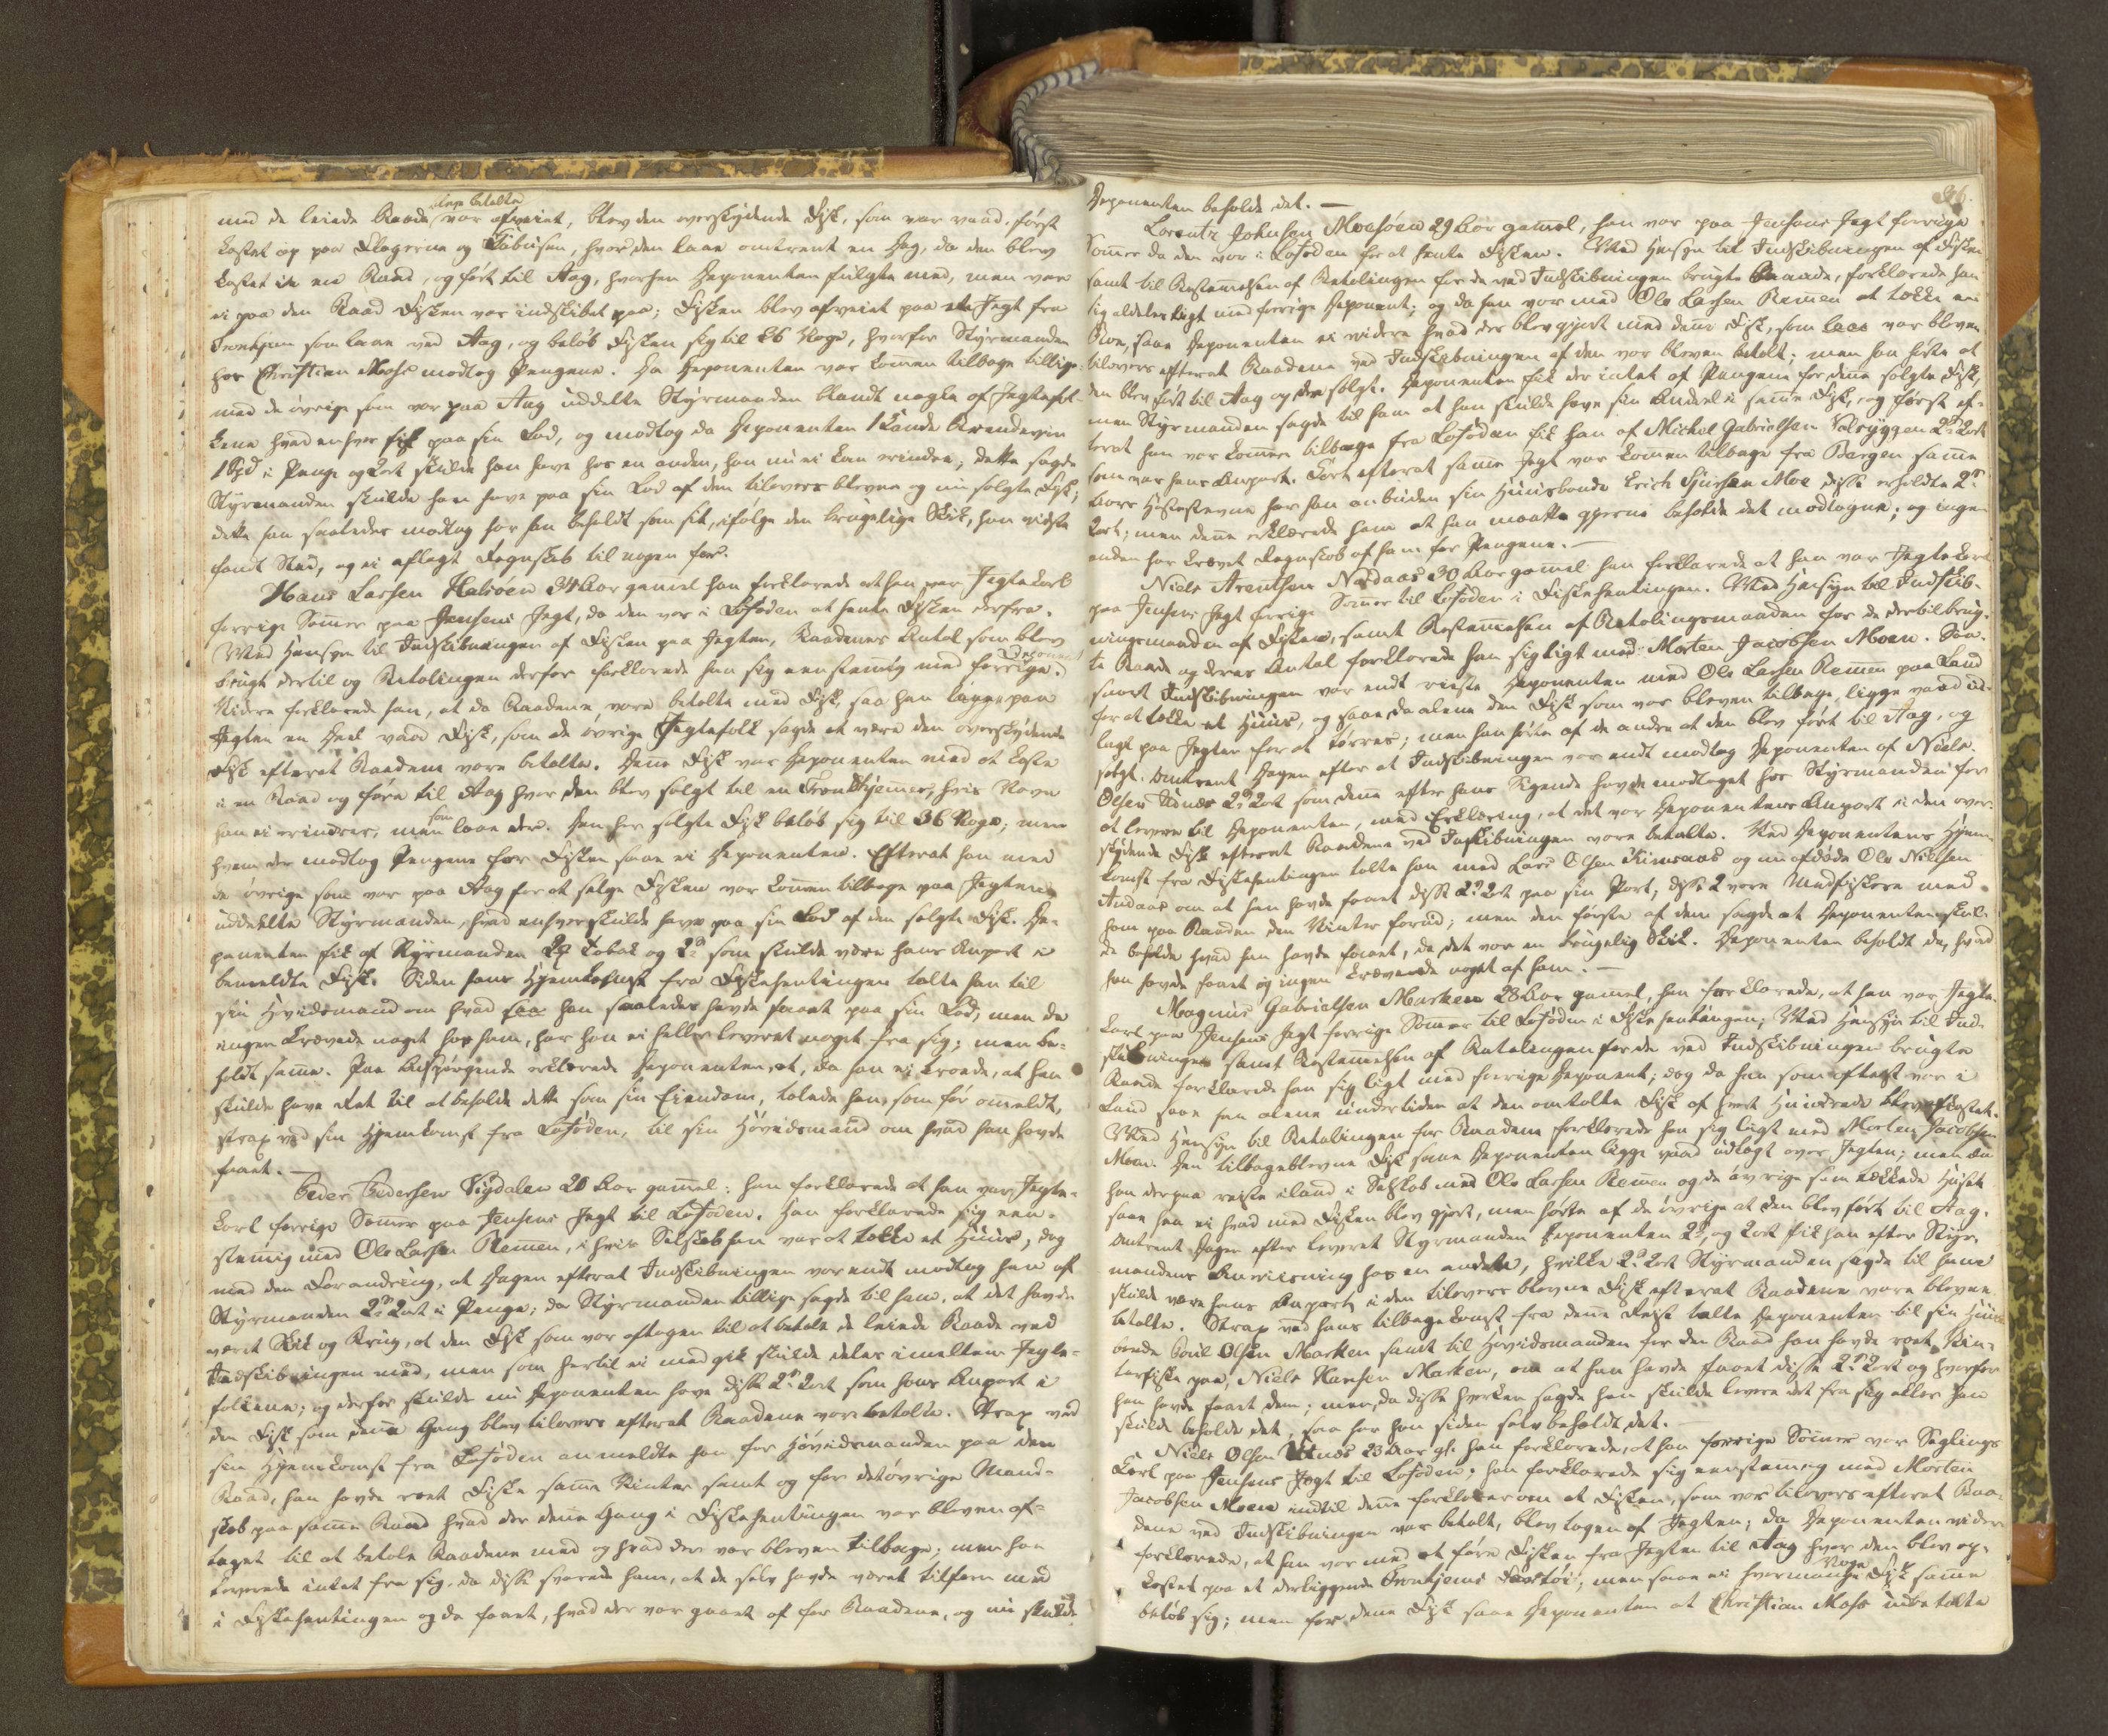 inge betalte
med de leiede Baade var afveiet, blev den overskydende Fisk, som var vaad, først
kastet op paa Flagerne og Kabusen, hvor den laae omtrent en Dag, da den blev
kastet i en Baad, og ført til Aag, hvorhen Deponenten fulgte med, men var
ei paa den Baad Fisken var indskibet paa; Fisken blev afveiet paa en Jagt fra
Trondhjem som laae ved Aag, og beløb Fisken sig til 36 Voge, hvorfor Styrmanden
hos Christian Mohs modtog Pengene. Da Deponenten var kommen tilbage tillige-
med de øvrige som var paa Aag uddelte Styrmanden blandt nogle af Jegtefol-
kene hvad enhver fik paa sin Lod, og modtog da Deponenten 1 Kande Brændeviin
1 Spd i Penge og 2ort skulde han have hos en anden, han nu ei kan erindre; dette sagde
Styrmanden skulde han have paa sin Lod af den tilovers blevne og nu solgte Fisk;
dette han saaledes modtog har han beholdt som sit, ifølge den brugelige Skik, han vidste
fandt Sted, og ei aflagt Regnskab til nogen for.
Hans Larsen Halsöen 34 Aar gamel han forklarede at han var Jegtekarl
forrige Somer paa Jensens Jegt, da den var i Lofoden at hente Fisken derfra.
Med Hensyn til Indskibningen af Fisken paa Jegten, Baadenes Antal som blev
brugt dertil og Betalingen derfor forklarede han sig eenstemig med forrige Deponent.
Videre forklarede han, at da Baadene vare betalte med Fisk, saa han ligge paa
Jegten en Deel vaad Fisk, som de øvrige Jegtefolk sagde at være den overskydende
Fisk efterat Baadene vare betalte. Denne Fisk var Deponenten med at kaste
i en Baad og føre til Aag hvor den blev solgt til en Trondhjemmer, hvis Navn
han ei erindrer, men som laae der. Den her solgte Fisk beløb sig til 36 Voge; men
hvem der modtog Pengene for Fisken saae ei Deponenten. Efterat han med
de øvrige som var paa Aag for at sælge Fisken var kommen tilbage paa Jegten
uddeelte Styrmanden, hvad enhver skulde have paa sin Lod af den solgte Fisk. De-
ponenten fik af Styrmanden Tobak og som skulde være hans Anpart i
bemeldte Fisk. Siden hans Hjemkomst fra Fiskehentingen talte han til
sin Høvidsmand om hvad han saaledes havde faaet paa sin Lod, men da
ingen krævede noget hos ham, har han ei heller leveret noget fra sig; men be-
holdt samme. Paa Befspørgende erklærede Deponenten, at, da han ei troede, at han
skulde have Ret til at beholde dette som sin Eiendom, talede han, som før ommeldt,
strax ved sin Hjemkomst fra Lofoden, til sin Høvidsmand om hvad han havde
faaet. —
Peder Pedersen Vigdalen 20 Aar gamel: han forklarede at han var Jegte-
karl forrige Somer paa Jensens Jegt til Lofoden. Han forklarede sig een-
stemig med Ole Larsen Remmen, i hvis Selskab han var at tække et Huus, dog
med den Forandring, at Dagen efterat Indskibningen var endt modtog han af
Styrmanden 2ort i Penge; da Styrmanden tillige sagde til ham, at det havde
været Skik og Brug, at den Fisk som var aftagen til at betale de leiede Baade ved
Indskibningen med, men som hertil ei medgik skulde deles imellem Jegte-
folkene; og derfor skulde nu Deponenten have disse 2ort som hans Anpart i
den Fisk som denne Gang blev tilovers efterat Baadene vare betalte. Strax ved
sin Hjemkomst fra Lofoden anmeldte han for Høvidsmanden paa den
Baad, han havde roet Fiske samme Vinter samt og for det øvrige Mand-
skab paa samme Baad hvad der denne Gang i Fiskehentingen var bleven af-
taget til at betale Baadene med og hvad der var bleven tilbage; men han
leverede intet fra sig, da disse svarede ham, at de selv havde været tilforn med
i Fiskehentingen og da faaet, hvad der var gaaet af for Baadene, og nu skulde
Deponenten beholde det. —
Lorentz Johnsen Moesöen 29 Aar gamel, han var paa Jensens Jegt forrige
Somer da den var i Lofoden for at hente Fisken. Med Hensyn til Indskibningen af Fisken
samt til Bestemelsen af Betalingen for de ved Indskibningen brugte Baade, forklarede han
sig aldeles ligt med forrige Deponent; og da han var med Ole Larsen Remmen at tække en
Boe, saae Deponenten ei videre hvad der blev gjort med denne Fisk, som var bleven
tilovers efterat Baadene ved Indskibningen af den var bleven betalt; men han hørte at
den blev ført til Aag og der solgt. Deponenten fik der intet af Pengene for denne solgte Fisk,
men Styrmanden sagde til ham at han skulde have sin Andeel i samme Fisk, og først ef-
terat han var kommen tilbage fra Lofoden fik han af Michel Gabrielsen 2ort
som var hans Anpart. Kort efterat samme Jegt var kommen tilbage fra Bergen samme
Aars Høstestevne har han anbuden sin Huusbonde Erich Sjursen Moe disse erholdte
2ort; men denne erklærede ham at han maatte gjerne beholde det modtagne; og ingen
anden har krævet Regnskab af ham for Pengene. —
Niels Arentsen Nordaas 30 Aar gamel han forklarede at han var Jegtekarl
paa Jensens Jegt forrige Somer til Lofoden i Fiskehentingen. Med Hensyn til Indskib-
ningsmaaden af Fisken, samt Bestemelsen af Betalingsmaaden for de dertil brug-
te Baade og deres Antal forklarede han sig ligt med Morten Jacobsen Moen. Saa-
snart Indskibningen var endt reiste Deponenten med Ole Larsen Remmen paa Land
for at tække et Huus, og saae da alene den Fisk som var bleven tilbage ligge vaad ud-
lagt paa Jegten for at tørres; men han hørte af de andre at den blev ført til Aag, og
solgt. Omtrent Dagen efter at Indskibningen var endt modtog Deponenten af Niels
Olsen Utnæs 2ort som denne efter hans Sigende havde modtaget hos Styrmanden for
at levere til Deponenten, med Erklæring, at det var Deponentens Anpart i den over-
skydende Fisk efterat Baadene ved Indskibningen vare betalte. Ved Deponentens Hjem-
komst fra Fiskehentingen talte han med Lars Olsen og nu afdøde Ole Nielsen
Andaas om at han havde faaet disse 2ort paa sin Part, disse 2 vare Medfiskere med
ham paa Baaden den Vinter forud; men den første af dem sagde at Deponenten skul-
de beholde hvad han havde faaet, da det var en brugelig Skik. Deponenten beholdt da, hvad
han havde faaet og ingen krævede noget af ham. —
Magnus Gabrielsen Marken 28 Aar gamel, han forklarede, at han var Jegte-
karl paa Jensens Jegt forrige Somer til Lofoden i Fiskehentingen; Med Hensyn til Ind-
skibningen samt Bestemelsen af Betalingen for de ved Indskibningen brugte
Baade forklarede han sig ligt med forrige Deponent; dog da han som oftest var i
Land saae han alene undertiden at den omtalte Fisk af hvert Hundrede blev afkastet.
Med Hensyn til Betalingen for Baadene forklarede han sig ligt med Morten Jacobsen
Moen. Den tilbageblevne Fisk saae Deponenten ligge vaad udlagt over Jegten; men da
han derpaa reiste iland i Selskab med Ole Larsen Remmen og de øvrige som tækkede Huset
saae han ei hvad med Fisken blev gjort, men hørte af de øvrige at den blev ført til Aag.
Omtrent Dagen efter leveret Styrmanden Deponenten og 2ort fik han efter Styr-
mandens Anviisning hos en anden, hvilke 2ort Styrmanden sagde til ham
skulde være hans Anpart i den tilovers blevne Fisk efterat Baadene vare blevne
betalte. Strax ved hans tilbagekomst fra denne Reise talte Deponenten til sin Huus-
bonde Poul Olsen Marken samt til Høvidsmanden for den Baad han havde roet Vin-
terfiske paa, Niels Hansen Marken, om at han havde faaet disse 2ort og hvorfor
han havde faaet dem; men da disse hverken sagde han skulde levere det fra sig eller han
skulde beholde det, saa har han siden selv beholdt det. —
Niels Olsen Utnæs 23 Aar gl. han forklarede, at han forrige Somer var Seglings
karl paa Jensens Jegt til Lofoden; han forklarede sig eenstemig med Morten
Jacobsen Moen indtil denne forklarer om at Fisken, som var tilovers efterat Baa-
dene ved Indskibningen var betalt, blev tagen af Jegten; da Deponenten videre
forklarede, at han var med at føre Fisken fra Jegten til Aag hvor den blev op-
kastet paa et derliggende Trondhjems Fartøi; men saae ei hvormange Voge Fisk samme
beløb sig; men for denne Fisk saae Deponenten at Christian Mohs udbetalte